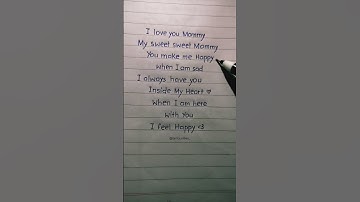 I love you Mommy
My sweet sweet Mommy
You make me Happy
when I am sad
I always have you
Inside My Heart ♡
When I am here
with You
I feel Happy <3